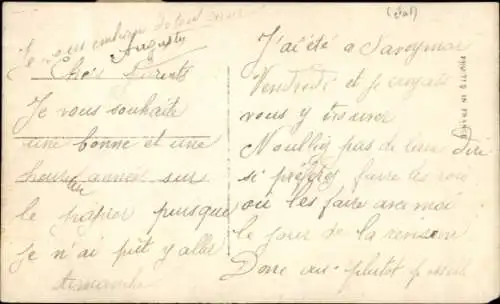 Je vous embrasse de tout cœur
Auguste
Chers Parents
Je vous souhaite
une bonne et une
heureuse année sur
le papier puisque
je n'ai put y aller
J'ai été a
Vendredi et je croyais
vous y trouver
N'oublier pas de leur dire
si préférer faire les rois
ou les faire avec moi
le jour de la revision
Donc plutot
(Jal)